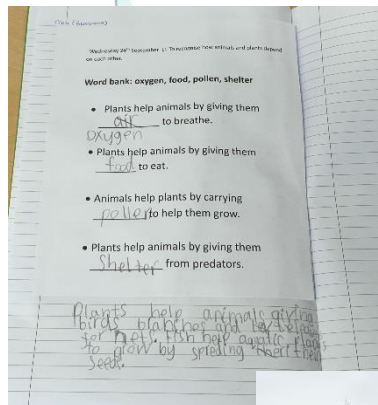 Wednesday 24th September LI: To recognise how animals and plants depend
on each other.
Word bank: oxygen, food, pollen, shelter
• Plants help animals by giving them
air to breathe.
oxygen
• Plants help animals by giving them
food to eat.
• Animals help plants by carrying
pollen to help them grow.
• Plants help animals by giving them
Shelter from predators.
Plants help animals giving
birds branches and
for nets. fish help aquatic plants
to grow by spreding their
Seeds.